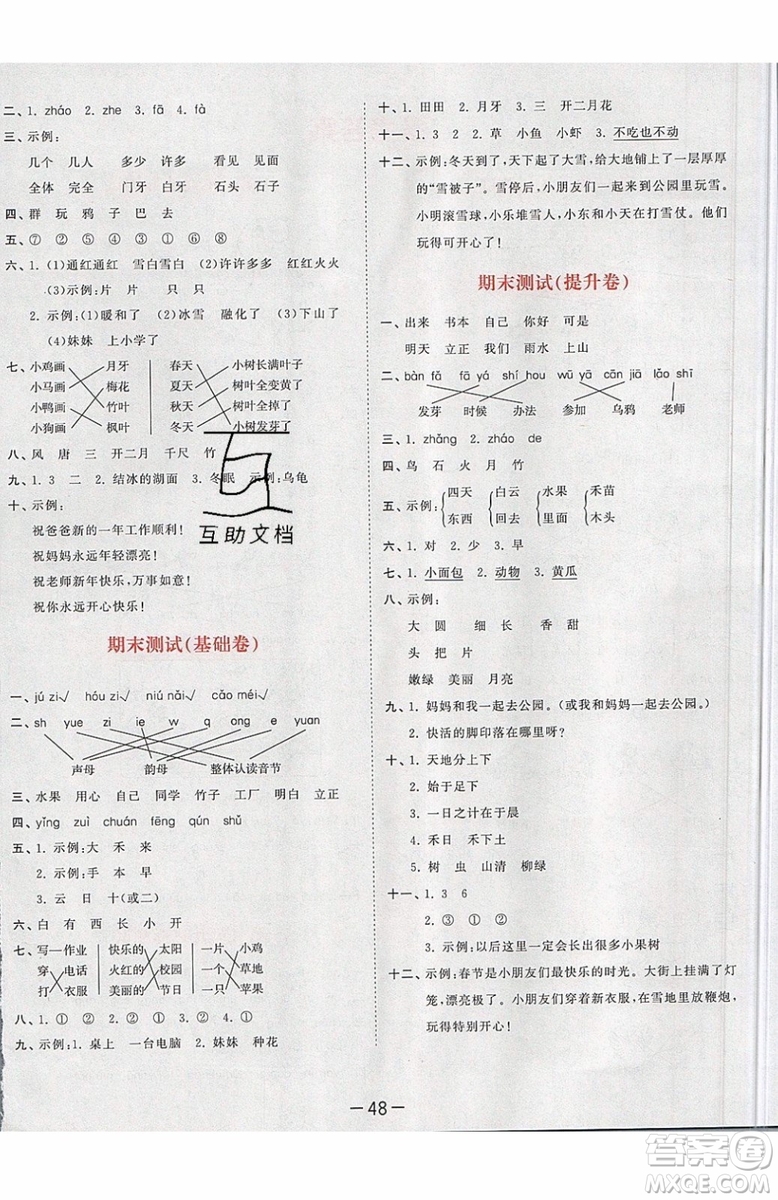 二、1. zháo 2. zhe 3. fā 4. fà
三、示例：
几个 几人 多少 许多 看见 见面
全体 完全 门牙 白牙 石头 石子
四、群 玩 鸦 子 巴 去
五、⑦ ② ④ ③ ① ⑤ ⑥ ⑧
六、1. (1)通红通红 雪白雪白 (2)许许多多 红红火火
(3)示例：片 片 只 只
2. 示例：(1)暖和了 (2)冰雪 融化了 (3)下山了
(4)妹妹 上小学了
七、小鸡画 月牙 春天 小树长满叶子
小马画 梅花 夏天 树叶全变黄了
小鸭画 竹叶 秋天 树叶全掉了
小狗画 枫叶 冬天 小树发芽了
八、风 唐 三 开 二月 千尺 竹
九、1. 3 2. 结冰的湖面 3. 冬眠 示例：乌龟
十、示例：
祝爸爸新的一年工作顺利！
祝妈妈永远年轻漂亮！
祝老师新年快乐，万事如意！
祝你永远开心快乐！
互助文档
期末测试(基础卷)
一、jú zi√ hóu zi√ niú nǎi√ cǎo méi√
二、sh yue zi ie w q ong e yuan
声母 韵母 整体认读音节
三、水果 用心 自己 同学 竹子 工厂 明白 立正
四、yǐng zuì chuán fēng qún shǔ
五、1. 示例：大 禾 来
2. 示例：手 本 早
3. 云 日 十(或二)
六、白 有 西 长 小 开
七、写 作业 快乐的 太阳 一片 小鸡
穿 电话 火红的 校园 一个 草地
打 衣服 美丽的 节日 一只 苹果
八、1. ① ② 2. ② ① ② ① ②
九、示例：1. 桌上 一台电脑 2. 妹妹 种花
十、1. 田田 2. 月牙 3. 三 开二月花
十一、1. 3 2 2. 草 小鱼 小虾 3. 不吃也不动
十二、示例：冬天到了，天下起了大雪，给大地铺上了一层厚厚
的“雪被子”。雪停后，小朋友们一起来到公园里玩雪。
小明滚雪球，小乐堆雪人，小东和小天在打雪仗。他们
玩得可开心了！
期末测试(提升卷)
一、出来 书本 自己 你好 可是
明天 立正 我们 雨水 上山
二、bàn fǎ fā yá shí hou wū yā cān jiā lǎo shī
发芽 时候 办法 参加 乌鸦 老师
三、1. zhǎng 2. zháo de
四、鸟 石 火 月 竹
五、示例： 四天 白云 水果 禾苗
东西 回去 里面 木头
六、1. 对 2. 少 3. 早
七、1. 小面包 2. 动物 3. 黄瓜
八、示例：
大 圆 细 长 香 甜
头 把 片
嫩绿 美丽 月亮
九、1. 妈妈和我一起去公园。（或我和妈妈一起去公园。）
2. 快活的脚印落在哪里呀？
十、1. 天地分上下
2. 始于足下
3. 一日之计在于晨
4. 禾日 禾下土
5. 树 虫 山清 柳绿
十一、1. 3 6
2. ③ ① ②
3. 示例：以后这里一定会长出很多小果树
十二、示例：春节是小朋友们最快乐的时光。大街上挂满了灯
笼，漂亮极了。小朋友们穿着新衣服，在雪地里放鞭炮，
玩得特别开心！
— 48 —
答案圈
MXQE.COM